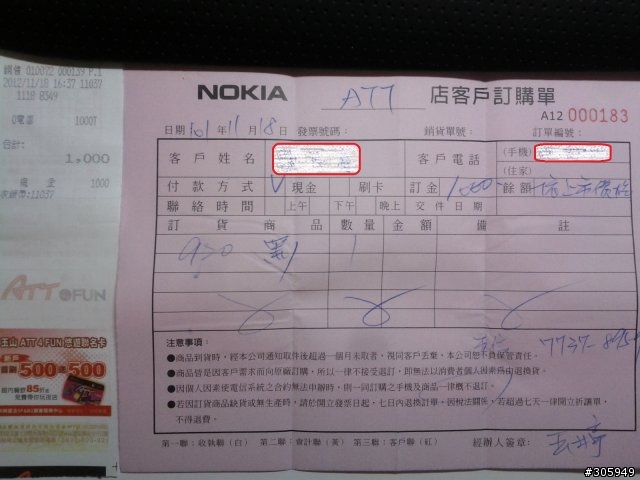 銷售 010072 000139 P.1
2012/11/18 16:37 11037
1118 8349
Q電寨 1000T
合計:
1,000
現 金 1000
收銀機:11037
ATT 4 FUN
玉山 ATT 4 FUN 悠遊聯名卡
500 送 500
館內餐飲85折起
免費停你玩透透
NOKIA ATT 店客戶訂購單
A12 000183
日期 101 年 11 月 18 日 發票號碼： 銷貨單號： 訂單編號：
客戶姓名 客戶電話 (手機)
(住家)
付款方式 V 現金 刷卡 訂金 1,000 餘額 依上市價格
聯絡時間 上午 下午 晚上 交件日期
訂貨商品 數量 金額 備註
920 1
注意事項：
●商品到貨時，經本公司通知取件後超過一個月未取者，視同客戶丟棄，本公司恕不負保管責任。
●商品皆是因客戶需求而向原廠訂購，所以一律不接受退訂，即無法以消費者個人因素為由退換訂。
●因個人因素使電信系統之合約無法申辦時，則一同訂購之手機及商品一概不退訂。
●若因訂貨商品缺貨或無生產時，請於開立發票日起，七日內退換訂單，因稅法關係，若超過七天一律開立折讓單，
不得退費。
第一聯：收執聯（白） 第二聯：會計聯（黃） 第三聯：客戶聯（紅） 經辦人簽章：
#305949